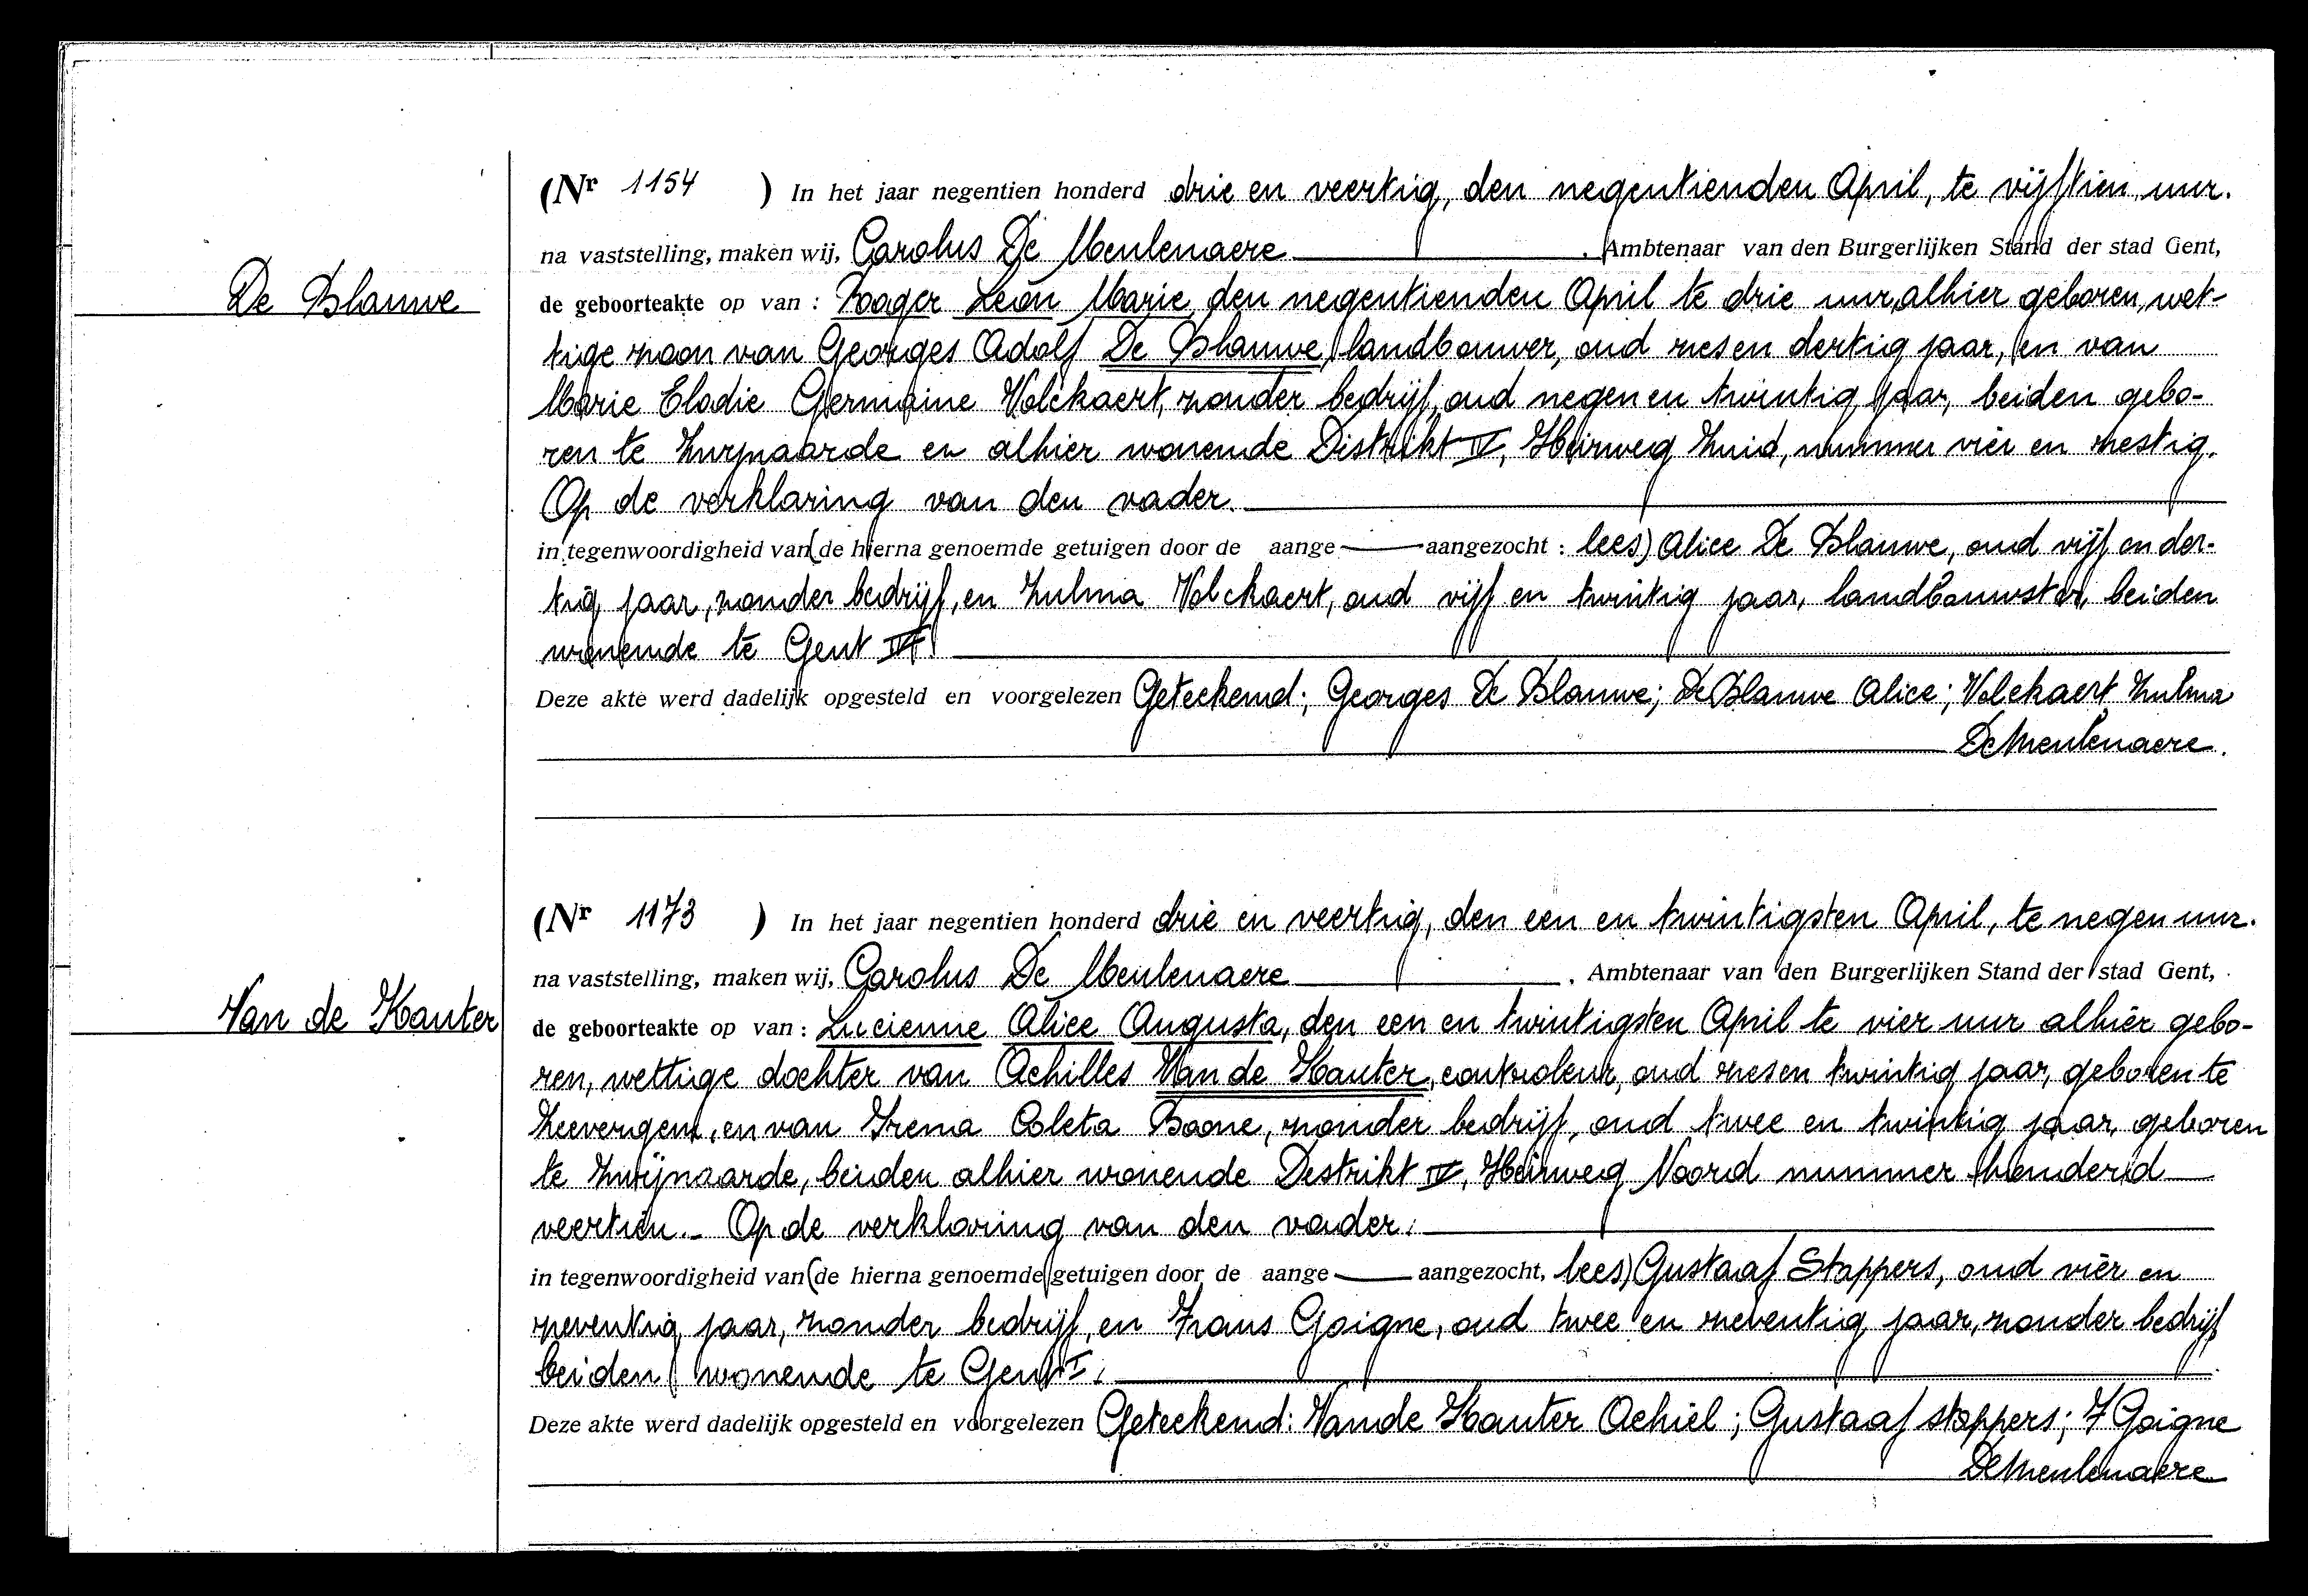 (Nr 1154 ) In het jaar negentien honderd drie en veertig, den negentienden April, te vijftien uur.
na vaststelling, maken wij, Carolus De Meulenaere . Ambtenaar van den Burgerlijken Stand der stad Gent,
De Blauwe
de geboorteakte op van : Roager Leon Marie, den negentienden April te drie uur, alhier geboren, wet-
tige zoon van Georges Adolf De Blauwe, landbouwer, oud zes en dertig jaar, en van
Marie Elodie Germaine Volckaert, zonder bedrijf, oud negen en twintig jaar, beiden gebo-
ren te Zwijnaarde en alhier wonende Distrikt IV, Heirweg Zuid, nummer vier en zestig.
Op de verklaring van den vader.
in tegenwoordigheid van (de hierna genoemde getuigen door de aange — aangezocht : lees) Alice De Blauwe, oud vijf en der-
tig jaar, zonder bedrijf, en Zulma Volckaert, oud vijf en twintig jaar, landbouwster, beiden
wonende te Gent IV.
Deze akte werd dadelijk opgesteld en voorgelezen Geteekend; Georges De Blauwe; De Blauwe Alice; Volckaert Zulma
DeMeulenaere.
(Nr 1173 ) In het jaar negentien honderd drie en veertig, den een en twintigsten April, te negen uur.
na vaststelling, maken wij, Carolus De Meulenaere . Ambtenaar van den Burgerlijken Stand der stad Gent,
Van de Kauter
de geboorteakte op van : Lucienne Alice Augusta, den een en twintigsten April te vier uur alhier gebo-
ren, wettige dochter van Achilles Van de Kauter, controleur, oud zes en twintig jaar, geboren te
Zevergem, en van Irena Coleta Boone, zonder bedrijf, oud twee en twintig jaar, geboren
te Zwijnaarde, beiden alhier wonende Destrikt IV, Heirweg Noord nummer honderd
veertien.- Op de verklaring van den vader.
in tegenwoordigheid van (de hierna genoemde getuigen door de aange — aangezocht, lees) Gustaaf Stappers, oud vier en
zeventig jaar, zonder bedrijf, en Frans Goigne, oud twee en zeventig jaar, zonder bedrijf
beiden wonende te Gent I.
Deze akte werd dadelijk opgesteld en voorgelezen Geteekend: Van de Kauter Achiel; Gustaaf stappers; F Goigne
DeMeulenaere